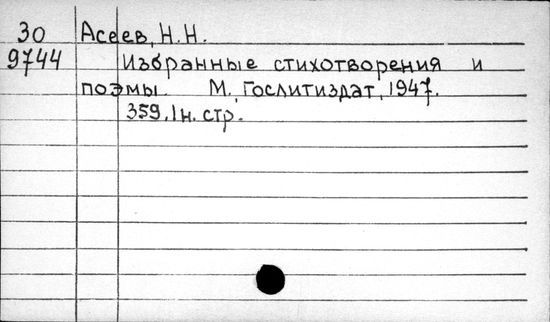 30 Асеев, Н.Н.
9744 Избранные стихотворения и
поэмы. М., Гослитиздат, 1947.
359, 1н. стр.